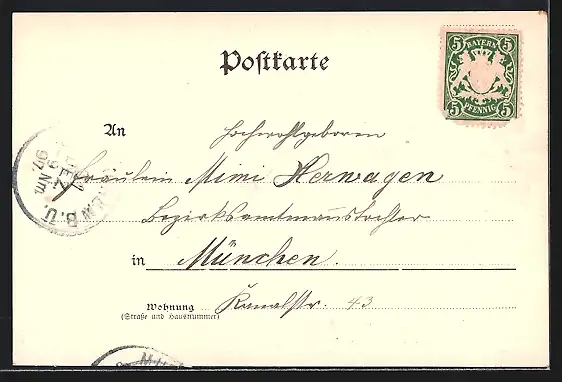 Postkarte
5 BAYERN 5
5 PFENNIG 5
An Hochwohlgeboren
Fräulein Mimi Herwagen
Bezirksamtmannstochter
in München.
Wohnung Kanalstr. 43
(Straße und Hausnummer)
DEZ
9
97. Nm.
B. U.